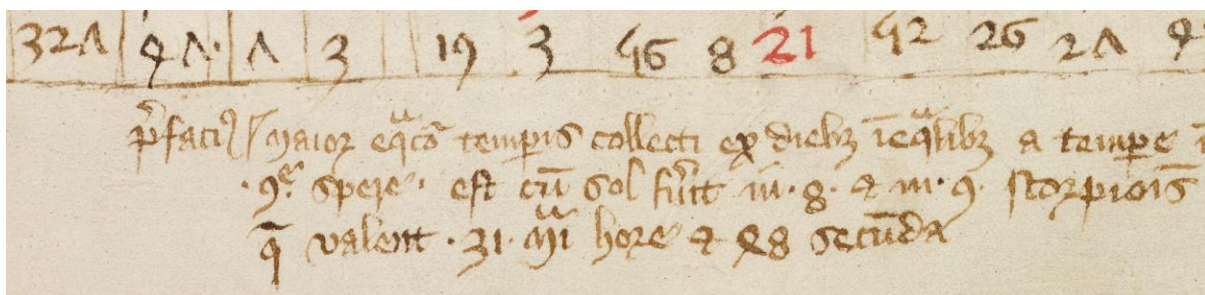 327 47· 7 3 19 3 56 8 21 52 26 27 4
p̄faciꝰ maior eqᵃcō temꝑis collecti ex diebꝫ īeqᵃlibꝫ a temꝑe
·9ᵉ· spere· est cū sol fu̾it in ·8· ⁊ in ·9· scorpiōis
q̄ valent ·31· mīᵃ hore ⁊ 48 secūda